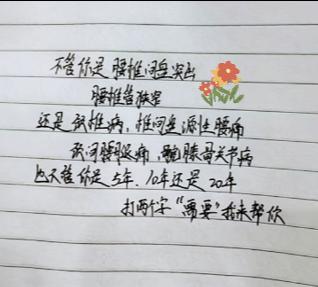 不管你是腰椎间盘突出
腰椎管狭窄
还是颈椎病,椎间盘源性腰痛
颈间腰腿痛,胸膝骨关节病
也不管你是5年、10年还是20年
打两个字“需要”我来帮你